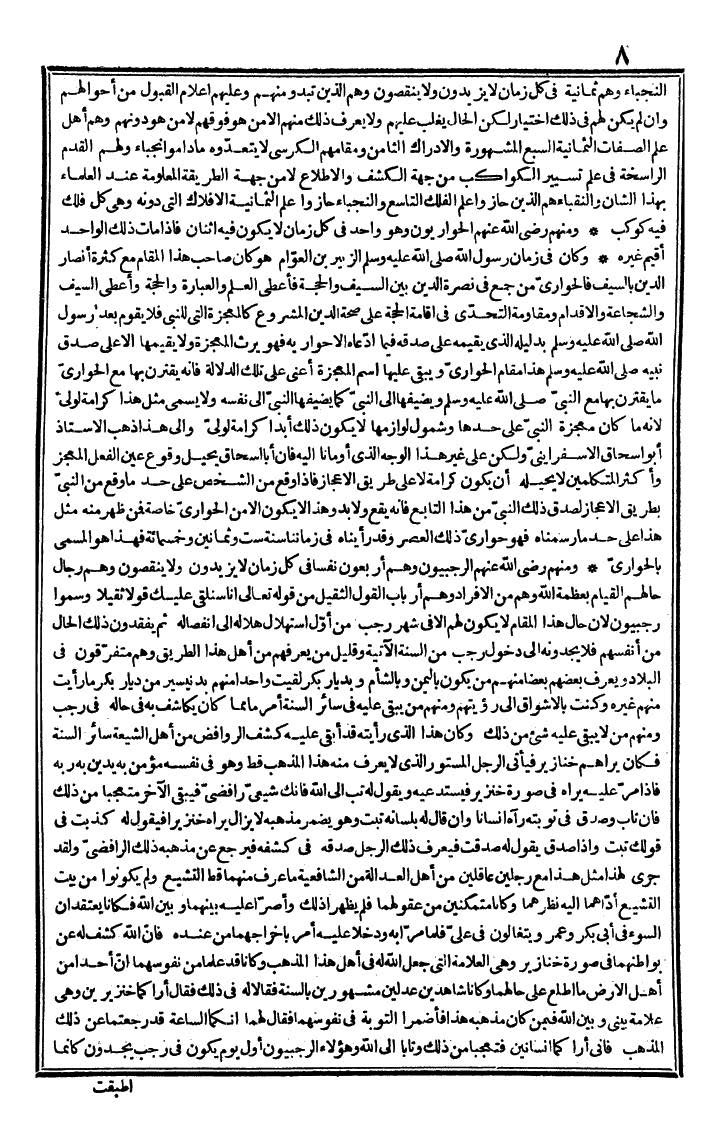 ٨
النجباء وهم ثمانية فى كل زمان لا يزيدون ولا ينقصون وهم الذين تبدو منهم وعليهم اعلام القبول من أحوالهم
وان لم يكن لهم فى ذلك اختيار لكن الحال يغلب عليهم ولا يعرف ذلك منهم الا من هو فوقهم لا من هو دونهم وهم أهل
علم الصفات الثمانية السبع المشهورة والادراك الثامن ومقامهم الكرسى لا يتعدّوه ماداموا نجباء ولهم القدم
الراسخة فى علم تسيير الكواكب من جهة الكشف والاطلاع لا من جهة الطريقة المعلومة عند العلماء
بهذا الشان والنقباء هم الذين حازوا علم الفلك التاسع والنجباء حازوا علم الثمانية الافلاك التى دونه وهى كل فلك
فيه كوكب * ومنهم رضى الله عنهم الحواريون وهو واحد فى كل زمان لا يكون فيه اثنان فاذا مات ذلك الواحد
أقيم غيره * وكان فى زمان رسول الله صلى الله عليه وسلم الزبير بن العوّام هو كان صاحب هذا المقام مع كثرة أنصار
الدين بالسيف فالحوارىّ من جمع فى نصرة الدين بين السيف والحجة فأعطى العلم والعبارة والحجة وأعطى السيف
والشجاعة والاقدام ومقاومة التحدّى فى اقامة الحجة على صحة الدين المشروع كالمعجزة التى للنبى فلا يقوم بعد رسول
الله صلى الله عليه وسلم بدليله الذى يقيمه على صدقه فيما ادّعاه الا حواريه فهو يرث المعجزة ولا يقيمها الا على صدق
نبيه صلى الله عليه وسلم هذا مقام الحوارىّ ويبقى عليها اسم المعجزة أعنى على تلك الدلالة فانه يقترن بها مع الحوارىّ
ما يقترن بها مع النبىّ صلى الله عليه وسلم ويضيفها الى النبىّ كما يضيفها النبىّ الى نفسه ولا يسمى مثل هذا كرامة لولىّ
لانه ما كان معجزة النبىّ على حدها وشمول لوازمها لا يكون ذلك أبدا كرامة لولىّ والى هذا ذهب الاستاذ
أبو اسحاق الاسفراينىّ ولكن على غير هذا الوجه الذى أومانا اليه فان أبا اسحاق يحيل وقوع عين الفعل المعجز
وأكثر المتكلمين لا يحيله أن يكون كرامة لا على طريق الاعجاز فاذا وقع من الشخص على حد ما وقع من النبىّ
بطريق الاعجاز لصدق ذلك النبىّ من هذا التابع فانه يقع ولا بد وهذا لا يكون الا من الحوارىّ خاصة فمن ظهر منه مثل
هذا على حد ما رسمناه فهو حوارىّ ذلك العصر وقد رأيناه فى زماننا سنة ست وثمانين وخمسمائة فهذا هو المسمى
بالحوارىّ * ومنهم رضى الله عنهم الرجبيون وهم أربعون نفسا فى كل زمان لا يزيدون ولا ينقصون وهم رجال
حالهم القيام بعظمة الله وهم من الافراد وهم أرباب القول الثقيل من قوله تعالى انا سنلقى عليك قولا ثقيلا وسموا
رجبيون لان حال هذا المقام لا يكون لهم الا فى شهر رجب من أوّل استهلال هلاله الى انفصاله ثم يفقدون ذلك الحال
من أنفسهم فلا يجدونه الى دخول رجب من السنة الآتية وقليل من يعرفهم من أهل هذا الطريق وهم متفرّقون فى
البلاد ويعرف بعضهم بعضا منهم من يكون باليمن وبالشأم وبديار بكر لقيت واحدا منهم بدنيسير من ديار بكر ما رأيت
منهم غيره وكنت بالاشواق الى رؤيتهم ومنهم من يبقى عليه فى سائر السنة أمر ما مما كان يكاشف به فى حاله فى رجب
ومنهم من لا يبقى عليه شئ من ذلك وكان هذا الذى رأيته قد أبقى عليه كشف الروافض من أهل الشيعة سائر السنة
فكان يراهم خنازير فيأتى الرجل المستور الذى لا يعرف منه هذا المذهب قط وهو فى نفسه مؤمن به يدين به ربه
فاذا مرّ عليه يراه فى صورة خنزير فيستدعيه ويقول له تب الى الله فانك شيعىّ رافضىّ فيبقى الآخر متعجبا من ذلك
فان تاب وصدق فى توبته رآه انسانا وان قال له بلسانه تبت وهو يضمر مذهبه لا يزال يراه خنزيرا فيقول له كذبت فى
قولك تبت واذا صدق يقول له صدقت فيعرف ذلك الرجل صدقه فى كشفه فيرجع عن مذهبه ذلك الرافضىّ ولقد
جرى لهذا مثل هذا مع رجلين عاقلين من أهل العدالة من الشافعية ما عرف منهما قط التشيع ولم يكونوا من بيت
التشيع أدّاهما اليه نظرهما وكانا متمكنين من عقولهما فلم يظهرا ذلك وأصرّا عليه بينهما وبين الله فكانا يعتقدان
السوء فى أبى بكر وعمر ويتغالون فى علىّ فلما مرّا به ودخلا عليه أمر باخراجهما من عنده فانّ الله كشف له عن
بواطنهما فى صورة خنازير وهى العلامة التى جعل الله له فى أهل هذا المذهب وكانا قد علما من نفوسهما انّ أحدا من
أهل الارض ما اطلع على حالهما وكانا شاهدين عدلين مشهورين بالسنة فقالا له فى ذلك فقال أراكما خنزيرين وهى
علامة بينى وبين الله فيمن كان مذهبه هذا فأضمرا التوبة فى نفوسهما فقال لهما انكما الساعة قد رجعتما عن ذلك
المذهب فانى أراكما انسانين فتعجبا من ذلك وتابا الى الله وهؤلاء الرجبيون أول يوم يكون فى رجب يجدون كانما
اطبقت